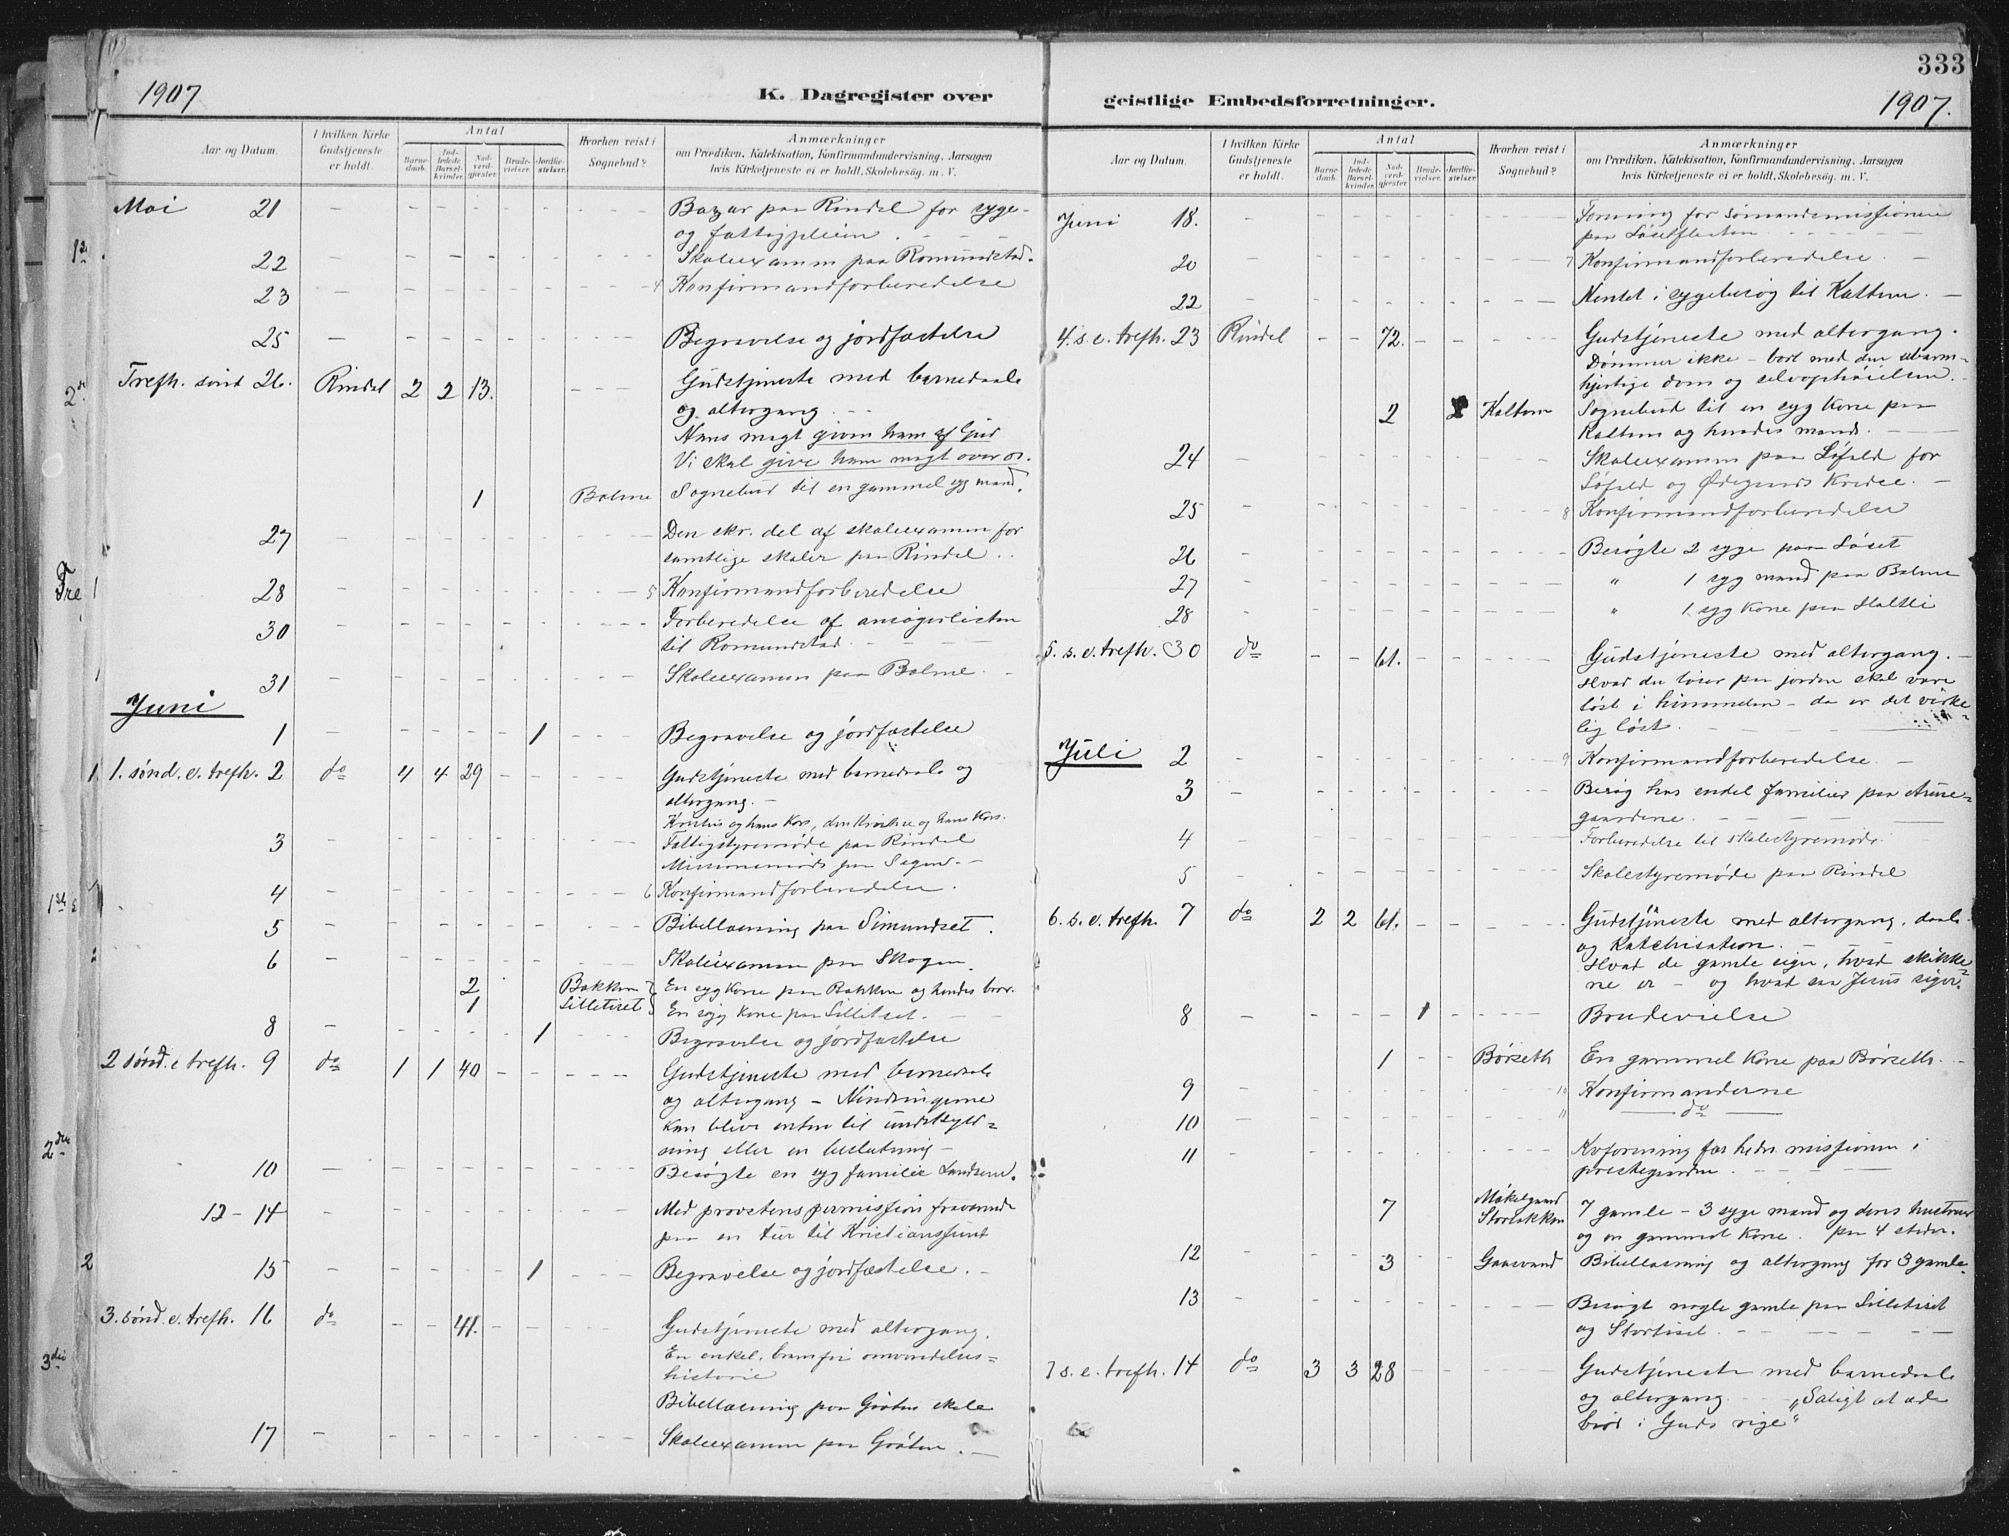 333
1907
K. Dagregister over
geistlige Embedsforretninger.
1907.
Aar og Datum.
I hvilken Kirke Gudstjeneste er holdt.
Antal
Barne-daab.
Ind-ledede Barsel-kvinder.
Nad-verd-gjester
Brude-vielser.
Jordfæ-stelser.
Hvorhen reist i Sognebud?
Anmærkninger
om Prædiken, Katekisation, Konfirmandundervisning, Aarsagen
hvis Kirketjeneste ei er holdt, Skolebesøg. m. V.
Mai 21 Bazar paa Rindal for syge-
og fattigpleien.
22 Skoleexamen paa Romundstad.
23 4 Konfirmandforberedelse
25 Begravelse og jordfæstelse
Trefh. sønd 26. Rindal 2 2 13. Gudstjeneste med barnedaab
og altergang.
Hans magt given ham af Gud
Vi skal give ham magt over os.
1 Bolme Sognebud til en gammel syg mand.
27 Den skr. del af skoleexamen for
samtlige skoler paa Rindal.
28 5 Konfirmandforberedelse
30 Forberedelse af ansøgerlisten
til Romundstad
31 Skoleexamen paa Bolme.
Juni
1 1 Begravelse og jordfæstelse
1. sønd. e. trefh. 2 do 4 4 29 Gudstjeneste med barnedaab og
altergang.
Kristus og hans kors, den kristne og hans kors.
3 Fattigstyremøde paa Rindal
4 6 Konfirmandforberedelse.
5 Bibellæsning paa Simundset.
6 Skoleexamen paa Skogen.
2 Bakken En syg kone paa Bakken og hendes bror.
1 Silletiset En syg kone paa Silletiset.
8 1 Begravelse og jordfæstelse
2 sønd. e trefh. 9 do 1 1 40 Gudstjeneste med barnedaab
og altergang - Hindringerne
kan blive enten til undskyld=
ning eller en beslutning -
10 Besøgte en syg familie Landsem.
12-14 Med provstens permission fraværende
paa en tur til Kristianssund
15 1 Begravelse og jordfæstelse.
3. sønd. e. trefh. 16 do 41. Gudstjeneste med altergang.
En enkel, omvendelses=
historie
Bibellæsning paa Grøten skole
17 Skoleexamen paa Grøten.
Aar og Datum.
I hvilken Kirke Gudstjeneste er holdt.
Antal
Barne-daab.
Ind-ledede Barsel-kvinder.
Nad-verd-gjester
Brude-vielser.
Jordfæ-stelser.
Hvorhen reist i Sognebud?
Anmærkninger
om Prædiken, Katekisation, Konfirmandundervisning, Aarsagen
hvis Kirketjeneste ei er holdt, Skolebesøg. m. V.
Juni 18. Forening for sømandsmissionen
paa Løsetflesten
20 7 Konfirmandforberedelse
22 Hentet i sygebesøg til Kattem.
4. s. e. trefh. 23 Rindal 72. Gudstjeneste med altergang.
Dømmer ikke - bort med den ubarm=
hjertige dom og selvophøielsen.
2 Kattem Sognebud til en syg kone paa
Kattem og hendes mand.
24 Skoleexamen paa Løfald for
Løfald og Ødegaards kredse.
25 8 Konfirmandforberedelse
26 Besøgte 2 syge paa Løset
27 " 1 syg mand paa Bolme
28 " 1 syg kone paa Haltli
5. s. e. trefh. 30 do 61. Gudstjeneste med altergang.
Hvad du løser paa jorden skal være
løst i himmelen - da er det virke=
lig løst.
Juli 2 9 Konfirmandforberedelse
3 Besøg hos endel familier paa Aune=
gaardene.
4 Forberedelse til skolestyremøde
5 Skolestyremøde paa Rindal
6. s. e. trefh. 7 do 2 2 61. Gudstjeneste med altergang, daab
og katekisation.
Hvad de gamle siger, hvad skikke=
ne er - og hvad saa Jesus siger.
8 1 Brudevielse
1 Børseth En gammel kone paa Børseth.
9 10 Konfirmanderne
10 11 do
11 Kvforening for hedn missionen i
prestegaarden.
7 Møkelgaard Storbækken 7 gamle - 3 syge mænd og deres hustruer
og en gammel kone. paa 4 steder.
12 3 Gaasvand Bibellæsning og altergang for 3 gamle.
13 Besøgt nogle gamle paa Silletiset
og Stortiset.
7 s. e. trefh. 14 do 3 3 28 Gudstjeneste med barnedaab
og altergang. "Saligt at æde
brød i Guds rige"